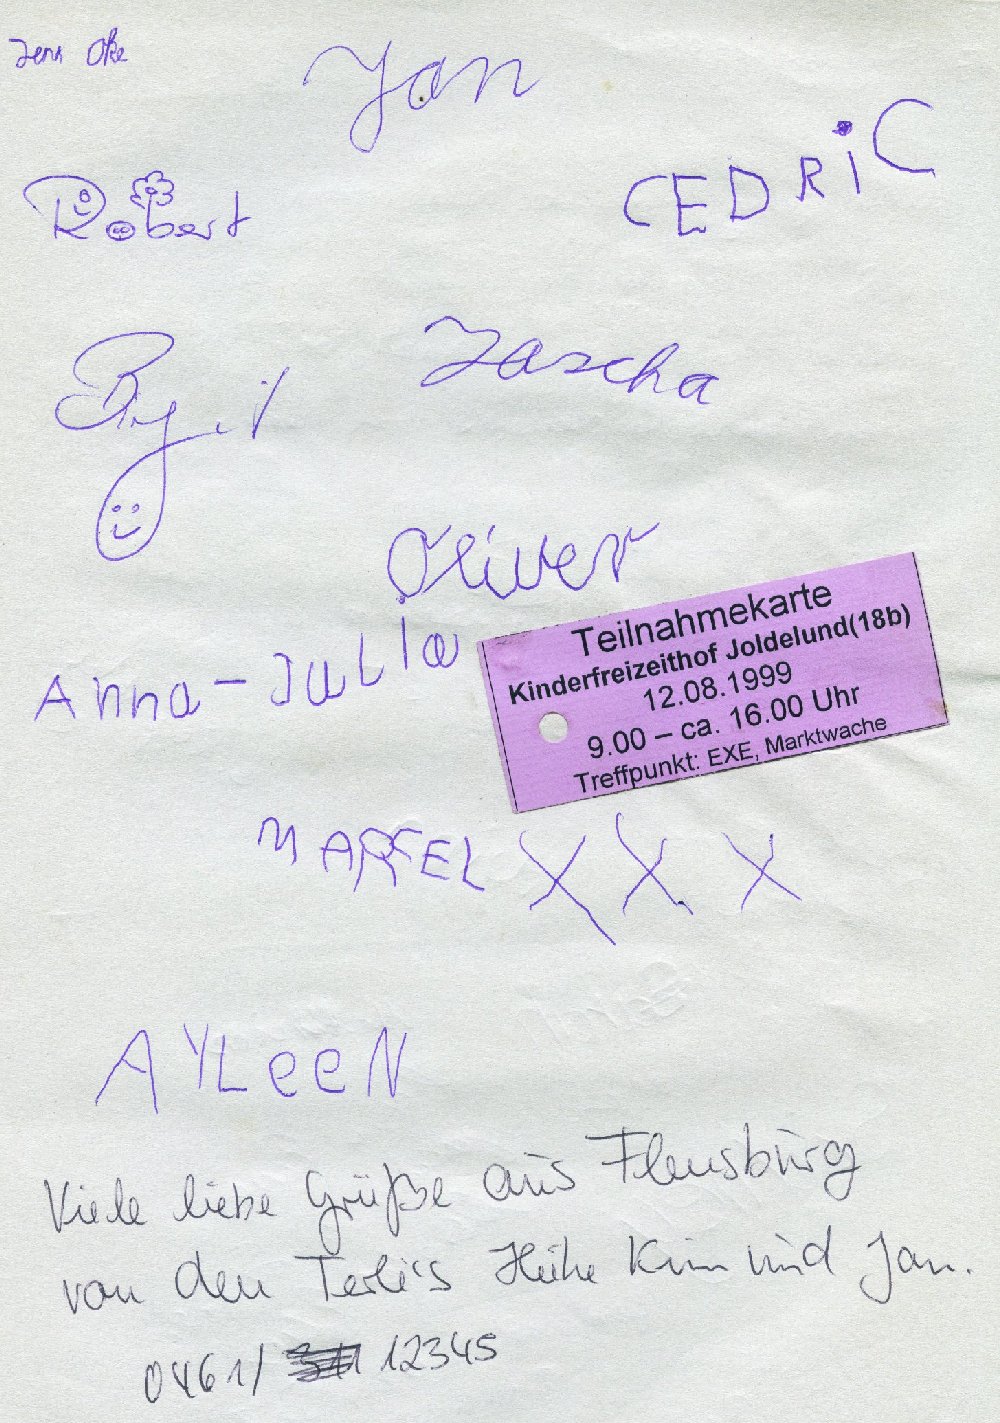 Jens Oke
Jan
CEDRiC
Robert
Jascha
Oliver
Anna-Julia
Teilnahmekarte
Kinderfreizeithof Joldelund(18b)
12.08.1999
9.00 – ca. 16.00 Uhr
Treffpunkt: EXE, Marktwache
MARCEL X X X
AYLeeN
Viele liebe Grüße aus Flensburg
von den Terli's Heike Kim und Jan.
0461/ 12345